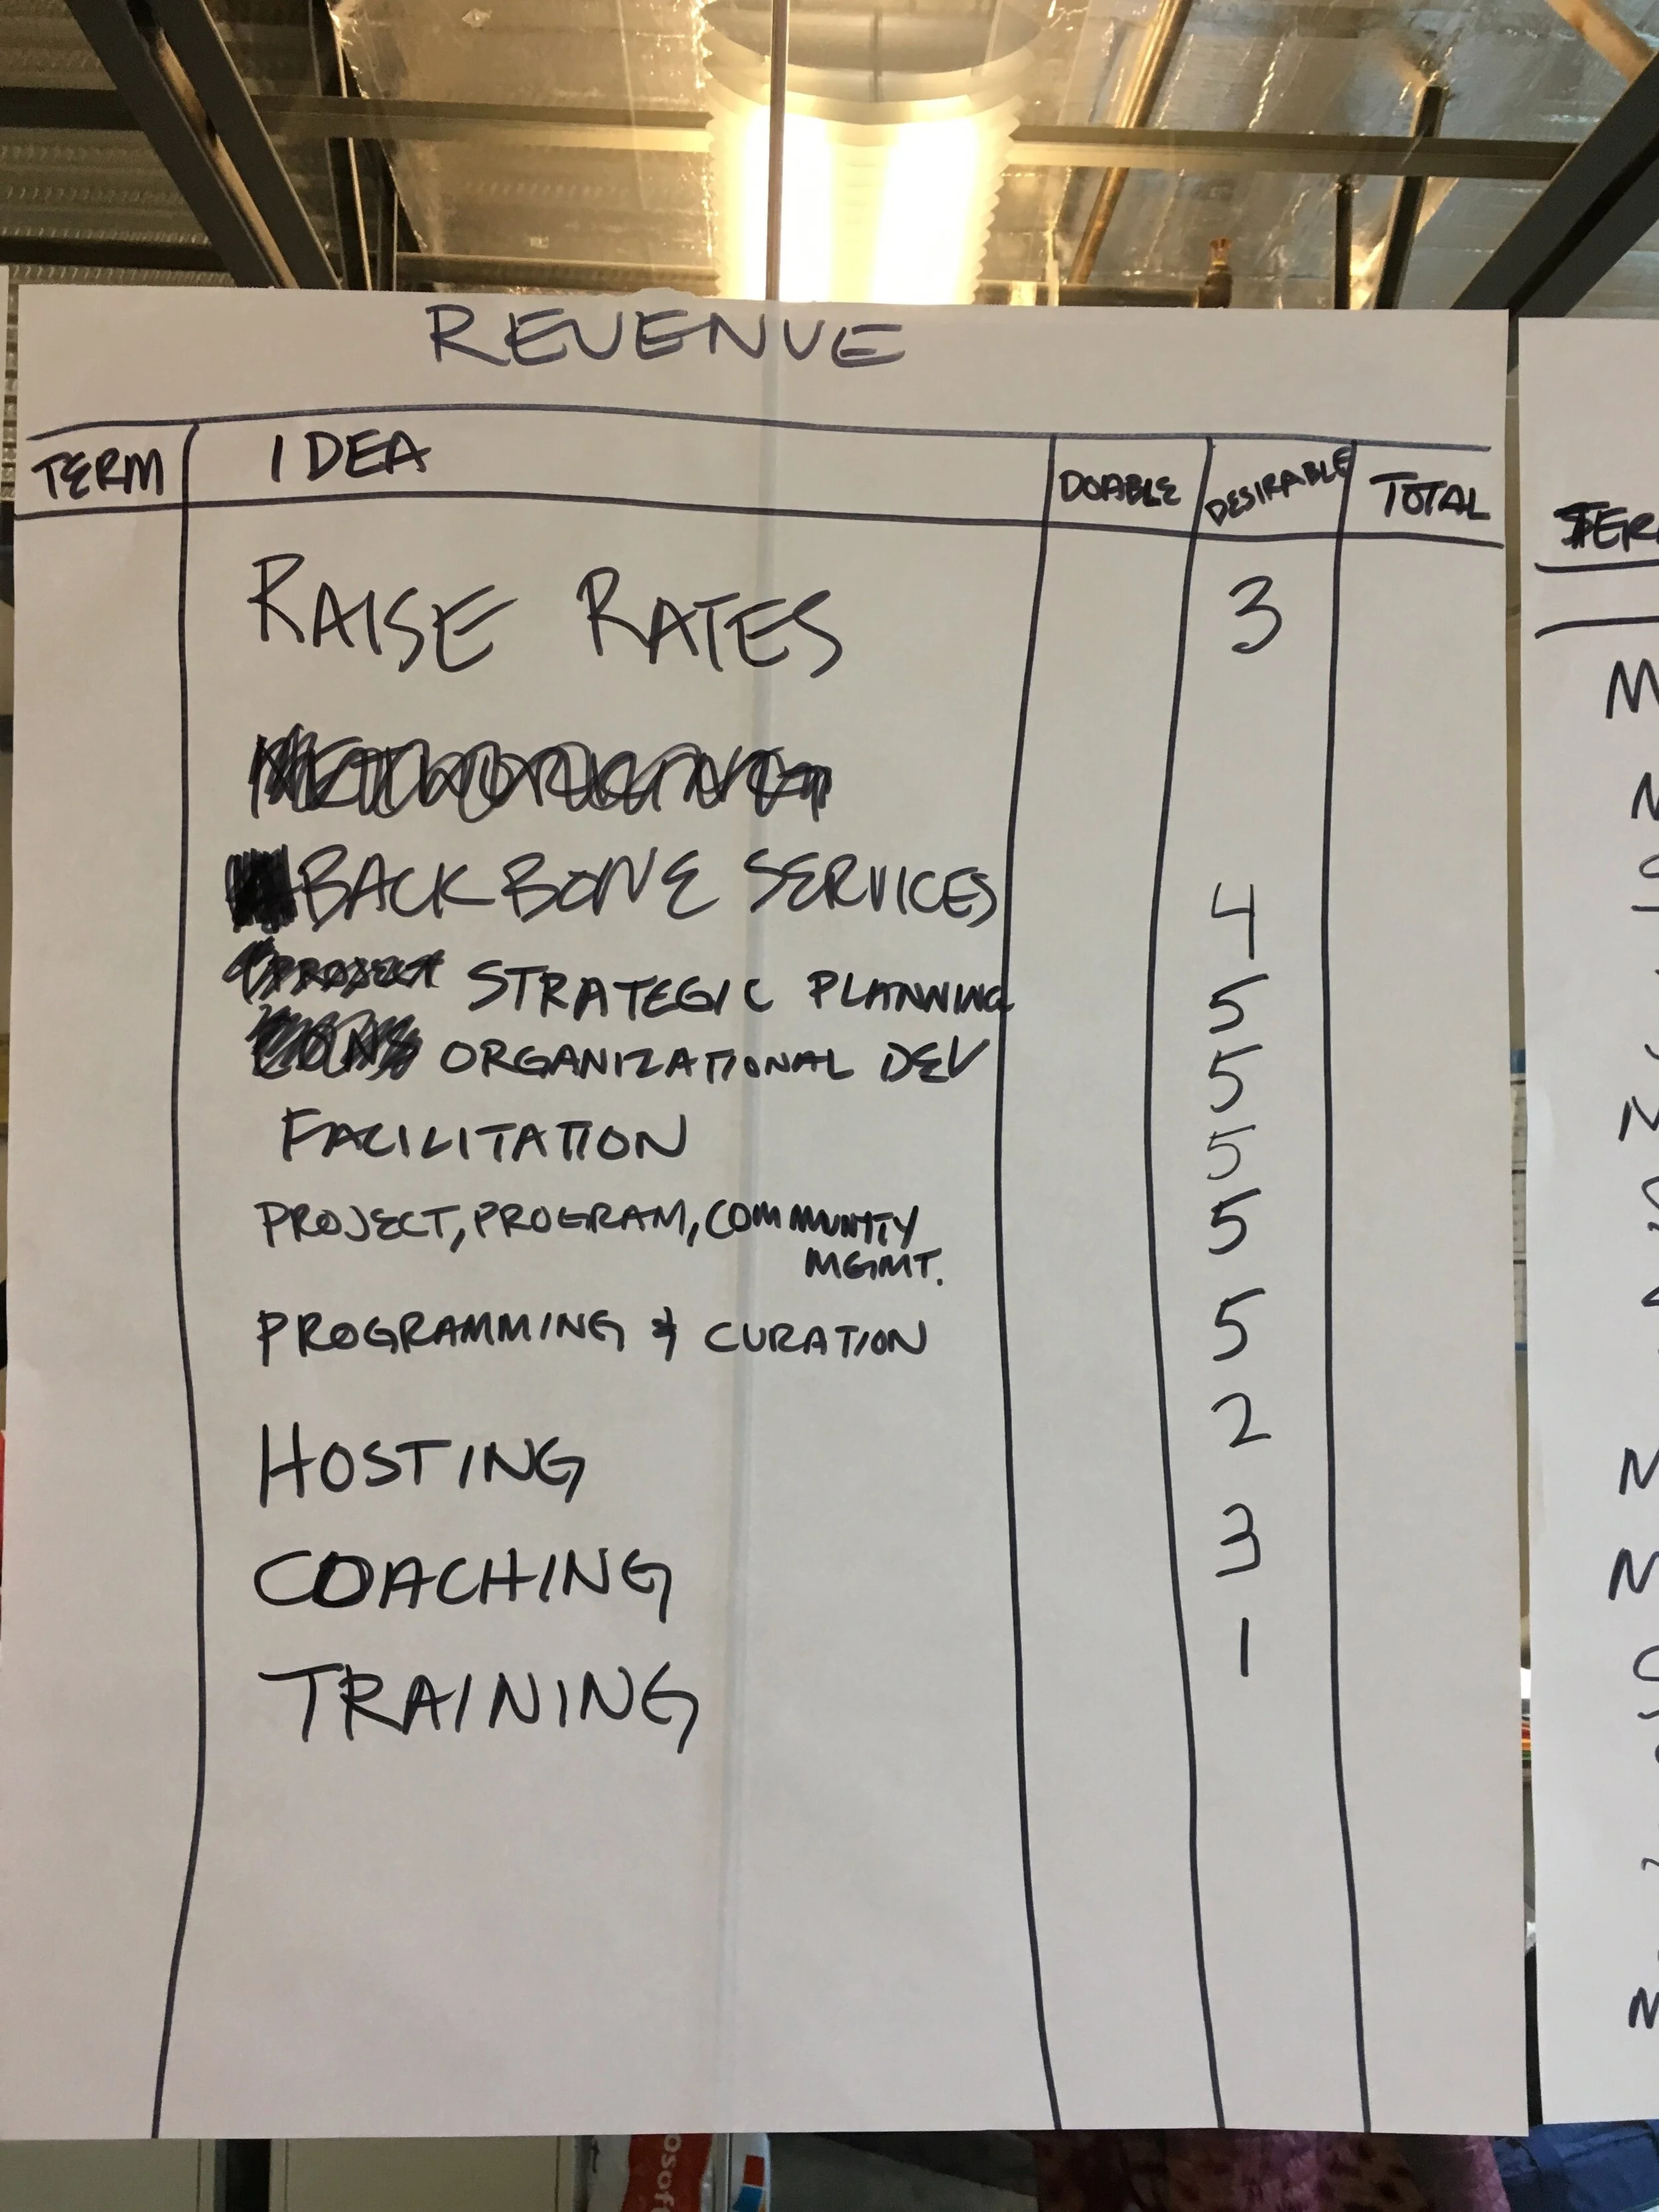 REVENUE
TERM IDEA DOABLE DESIRABLE TOTAL
RAISE RATES 3
BACKBONE SERVICES 4
PROJECT STRATEGIC PLANNING 5
ORGANIZATIONAL DEV 5
FACILITATION 5
PROJECT, PROGRAM, COMMUNITY 5
MGMT.
PROGRAMMING & CURATION 5
HOSTING 2
COACHING 3
TRAINING 1